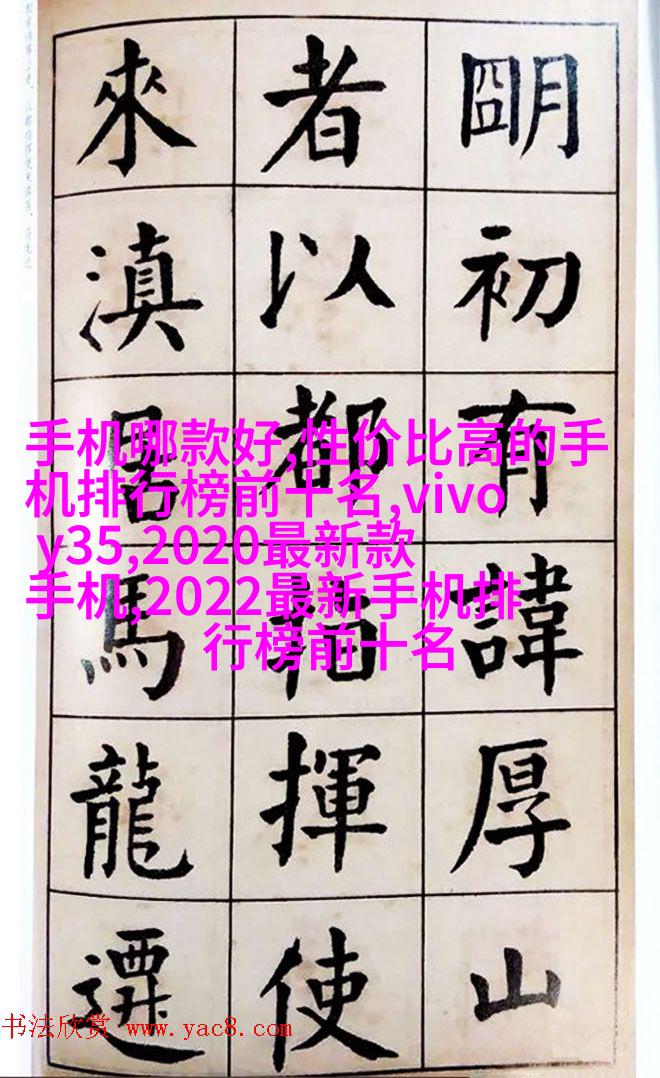 朙初有諱厚山
者以都指揮使
來滇居馬龍遷
手机哪款好,性价比高的手
机排行榜前十名,vivo
y35,2020最新款
手机,2022最新手机排
行榜前十名
书法欣赏 www.yac8.com